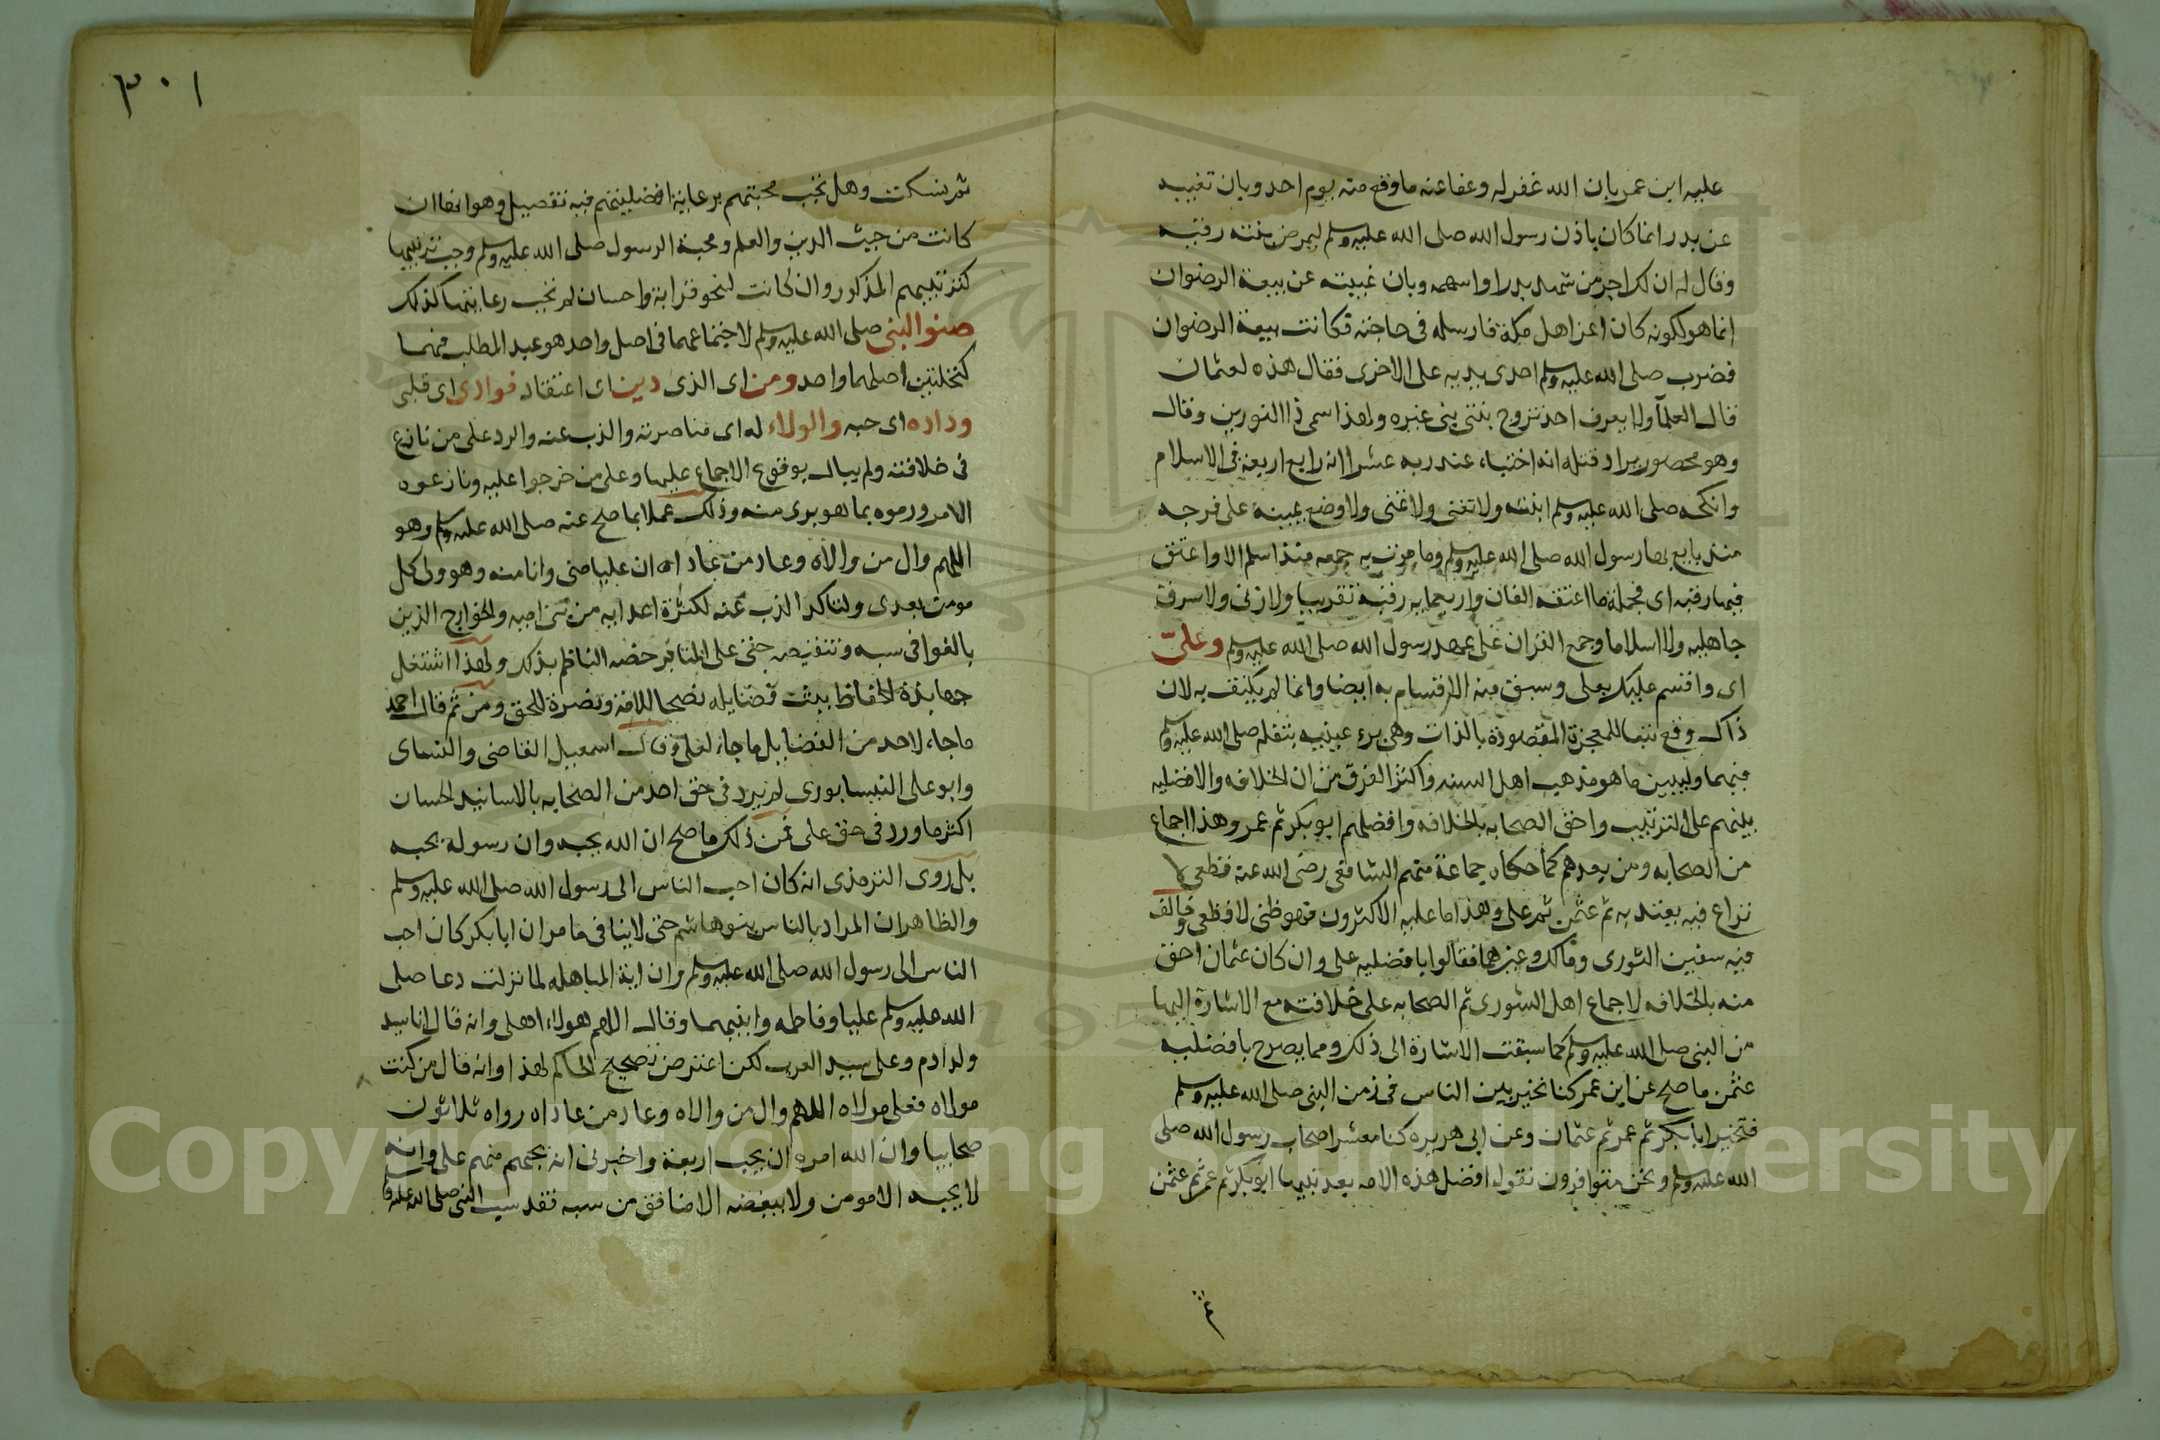 عليه ابن عمر بان الله غفر له وعفا عنه ما وقع منه يوم احد وبان تغيبه
عن بدر انما كان باذن رسول الله صلى الله عليه وسلم ليمرض بنته رقيه
وقال له ان لك اجر من شهد بدرا واسهمه وبان غيبته عن بيعة الرضوان
انما هو لكونه كان اعز اهل مكة فارسله فى حاجته فكانت بيعة الرضوان
فضرب صلى الله عليه وسلم احدى يديه على الاخرى فقال هذه لعثمان
قال العلمآ ولا يعرف احد تزوج بنتى نبى غيره ولهذا سمى ذا النورين وقال
وهو محصور يراد قتله انه اختباء عند ربه عشرا انه رابع اربعة فى الاسلام
وانكحه صلى الله عليه وسلم ابنته ولا تغنى ولا تمنى ولا وضع يمينه على فرجه
منذ بايع بها رسول الله صلى الله عليه وسلم وما مرت به جمعه منذ اسلم الا واعتق
فيها رقبه اى فجملة ما اعتقه الفان واربعمايه رقبة تقريبا ولا زنى ولا سرق
جاهليه ولا اسلاما وجمع القران على عهد رسول الله صلى الله عليه وسلم وعلىّ
اى واقسم عليك بعلى وسبق منه الاقسام به ايضا وانما لم يكتف به لان
ذاك وقع تبعا للمعجزة المقصودة بالذات وهى برء عينيه بتفله صلى الله عليه وسلم
فيهما وليبين ما هو مذهب اهل السنه واكثر الفرق من ان الخلافه والافضليه
بينهم على الترتيب واحق الصحابه بالخلافه وافضلهم ابو بكر ثم عمر وهذا اجماع
من الصحابه ومن بعدهم كما حكاه جماعة منهم الشافعى رضى الله عنه فقطعى لا
نزاع فيه يعتد به ثم عثمن ثم على وهذا ما عليه الاكثرون فهو ظنى لا قطعى وخالف
فيه سفين الثورى ومالك وغيرهما فقالوا بافضليه على وان كان عثمان احق
منه بالخلافه لاجماع اهل الشورى ثم الصحابه على خلافته مع الاشارة اليها
من النبى صلى الله عليه وسلم كما سبقت الاشارة الى ذلك ومما يصرح بافضليه
عثمن ما صح عن ابن عمر كنا نخير بين الناس فى زمن النبى صلى الله عليه وسلم
فتخير ابا بكر ثم عمر ثم عثمان وعن ابى هريره كنا معشر اصحاب رسول الله صلى
الله عليه وسلم ونحن متوافرون نقول افضل هذه الامه بعد نبيها ابو بكر ثم عمر ثم عثمن
٣٠١
ثم نسكت وهل تجب محبتهم برعاية افضليتهم فيه تفصيل وهو انها ان
كانت من حيث الدين والعلم ومحبة الرسول صلى الله عليه وسلم وجب ترتيبها
كترتيبهم المذكور وان كانت لنحو قرابة واحسان لم تجب رعايتها كذلك
صنو النبى صلى الله عليه وسلم لاجتماعهما فى اصل واحد هو عبد المطلب فهما
كنخلتين اصلهما واحد ومن اى الذى دين اى اعتقاد فوادى اى قلبى
وداده اى حبه والولاء له اى مناصرته والذب عنه والرد على من نازع
فى خلافته ولم يبال بوقوع الاجماع عليها وعلى من خرجوا عليه ونازعوه
الامر ورموه بما هو برى منه وذلك عملا بما صح عنه صلى الله عليه وسلم وهو
اللهم وال من والاه وعاد من عاداه ان عليا منى وانا منه وهو ولى كل
مومن بعدى ولتاكد الذب عنه لكثرة اعدايه من بنى اميه والخوارج الذين
بالغوا فى سبه وتنقيصه حتى على المنابر خصه الناظم بذلك ولهذا اشتغل
جهابذة الحفاظ ببث فضايله نصحا للامة ونصرة للحق ومن ثم قال احمد
ما جاء لاحد من الفضايل ما جاء لعلى وقال اسمعيل القاضى والنساى
وابو على النيسابورى لم يرد فى حق احد من الصحابه بالاسانيد الحسان
اكثر ما ورد فى حق على فمن ذلك ما صح ان الله يحبه وان رسوله يحبه
بل روى الترمذى انه كان احب الناس الى رسول الله صلى الله عليه وسلم
والظاهر ان المراد بالناس بنو هاشم حتى لا ينافى ما مر ان ابا بكر كان احب
الناس الى رسول الله صلى الله عليه وسلم وان اية المباهله لما نزلت دعا صلى
الله عليه وسلم عليا وفاطمه وابنيهما وقال اللهم هولاء اهلى وانه قال انا سيد
ولد ادم وعلى سيد العرب لكن اعترض تصحيح الحاكم لهذا وانه قال من كنت
مولاه فعلى مولاه اللهم وال من والاه وعاد من عاداه رواه ثلاثون
صحابيا وان الله امره ان يحب اربعة واخبرنى انه يحبهم منهم على وانه
لا يحبه الا مومن ولا يبغضه الا منافق من سبه فقد سب النبى صلى الله عليه و
Copyright © King Saud University